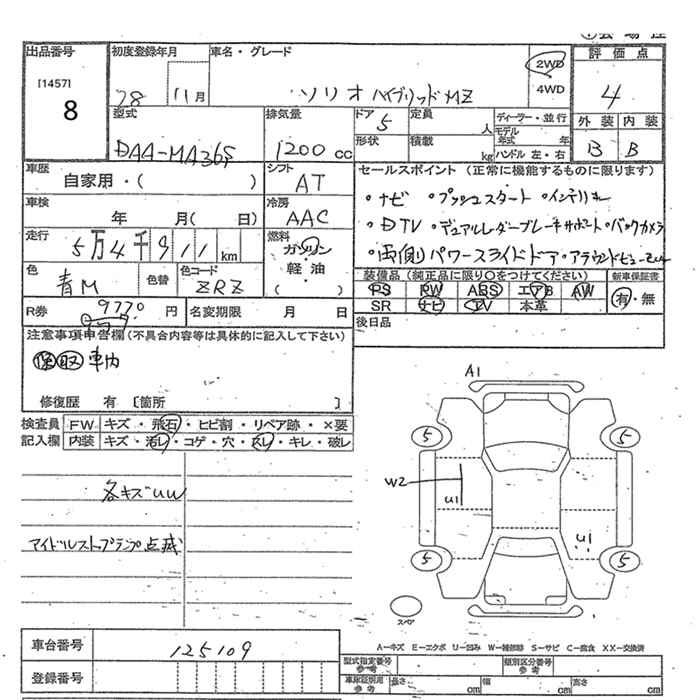 出品番号
[1457]
8
初度登録年月
28 11月
車名・グレード
ソリオ ハイブリッドMZ
2WD
4WD
評価点
4
外装 内装
B B
型式
DAA-MA36S
排気量
1200 cc
ドア 5
形状
定員 人
積載 kg
ディーラー・並行
モデル年式 年
ハンドル 左・右
車歴
自家用・( )
シフト
AT
セールスポイント (正常に機能するものに限ります)
・ナビ ・プッシュスタート ・インテリキー
・DTV ・デュアルレーダーブレーキサポート ・バックカメラ
・両側パワースライドドア ・アラウンドビュー
車検
年 月( 日)
冷房
AAC
走行
5万4千911 km
燃料
ガソリン
・
軽油
( )
色
青M
色替
色コード
ZRZ
装備品 (純正品に限り○をつけてください)
新車保証書
PS PW ABS エアB AW
有・無
SR ナビ TV 本革
R券 9770 円
名変期限 月 日
後日品
注意事項申告欄 (不具合内容等は具体的に記入して下さい)
保 取 車内
修復歴 有 [箇所 ]
検査員 FW キズ・飛石・ヒビ割・リペア跡・×要
記入欄 内装 キズ・汚レ・コゲ・穴・スレ・キレ・破レ
各キズUW
アイドルストップランプ点滅
A1
5 5
W2
U1
U1
5 5
スペア
A－キズ E－エクボ U－凹み W－補修跡 S－サビ C－腐食 XX－交換済
車台番号 125109
登録番号
型式指定番号 参考
類別区分番号 参考
車庫証明用 参考
長さ cm 幅 cm 高さ cm